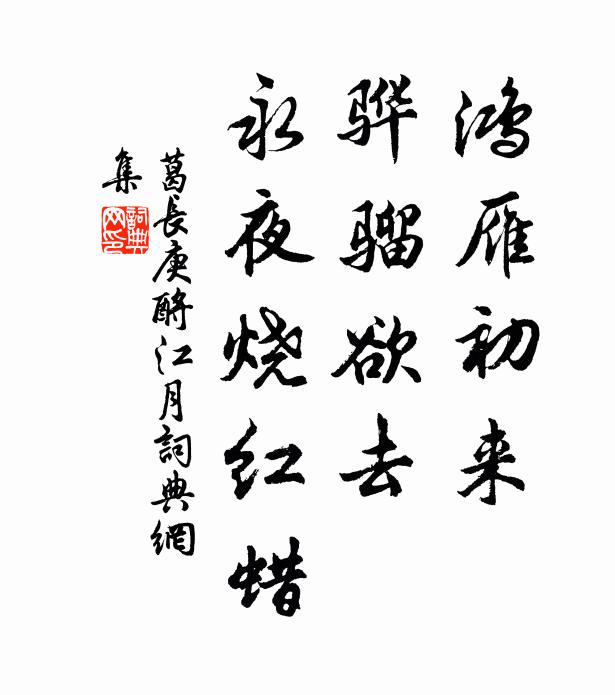 鸿雁初来
骅骝欲去
永夜烧红蜡
葛長庚酹江月詞典網
集
詞典
网印